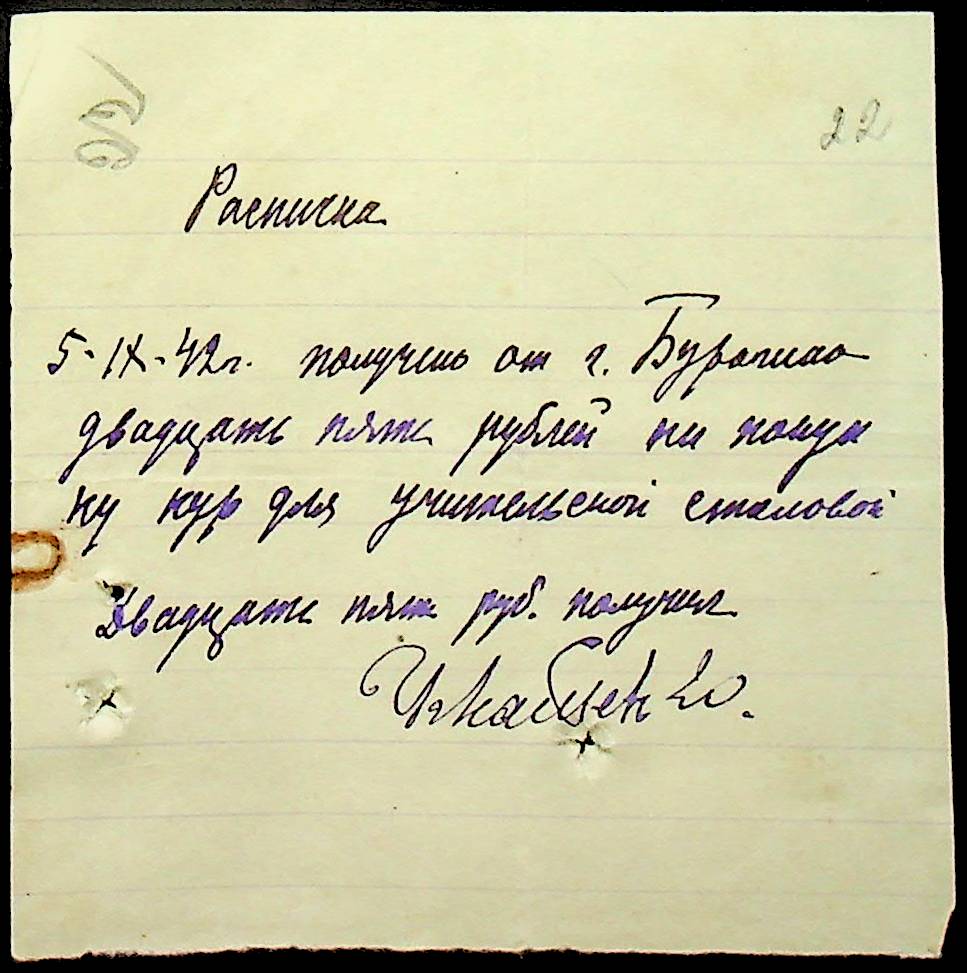 22
Расписка
5-IX-42г. получено от г.
двадцать пять рублей на покуп
ку кур для учительской столовой
Двадцать пять руб. получил